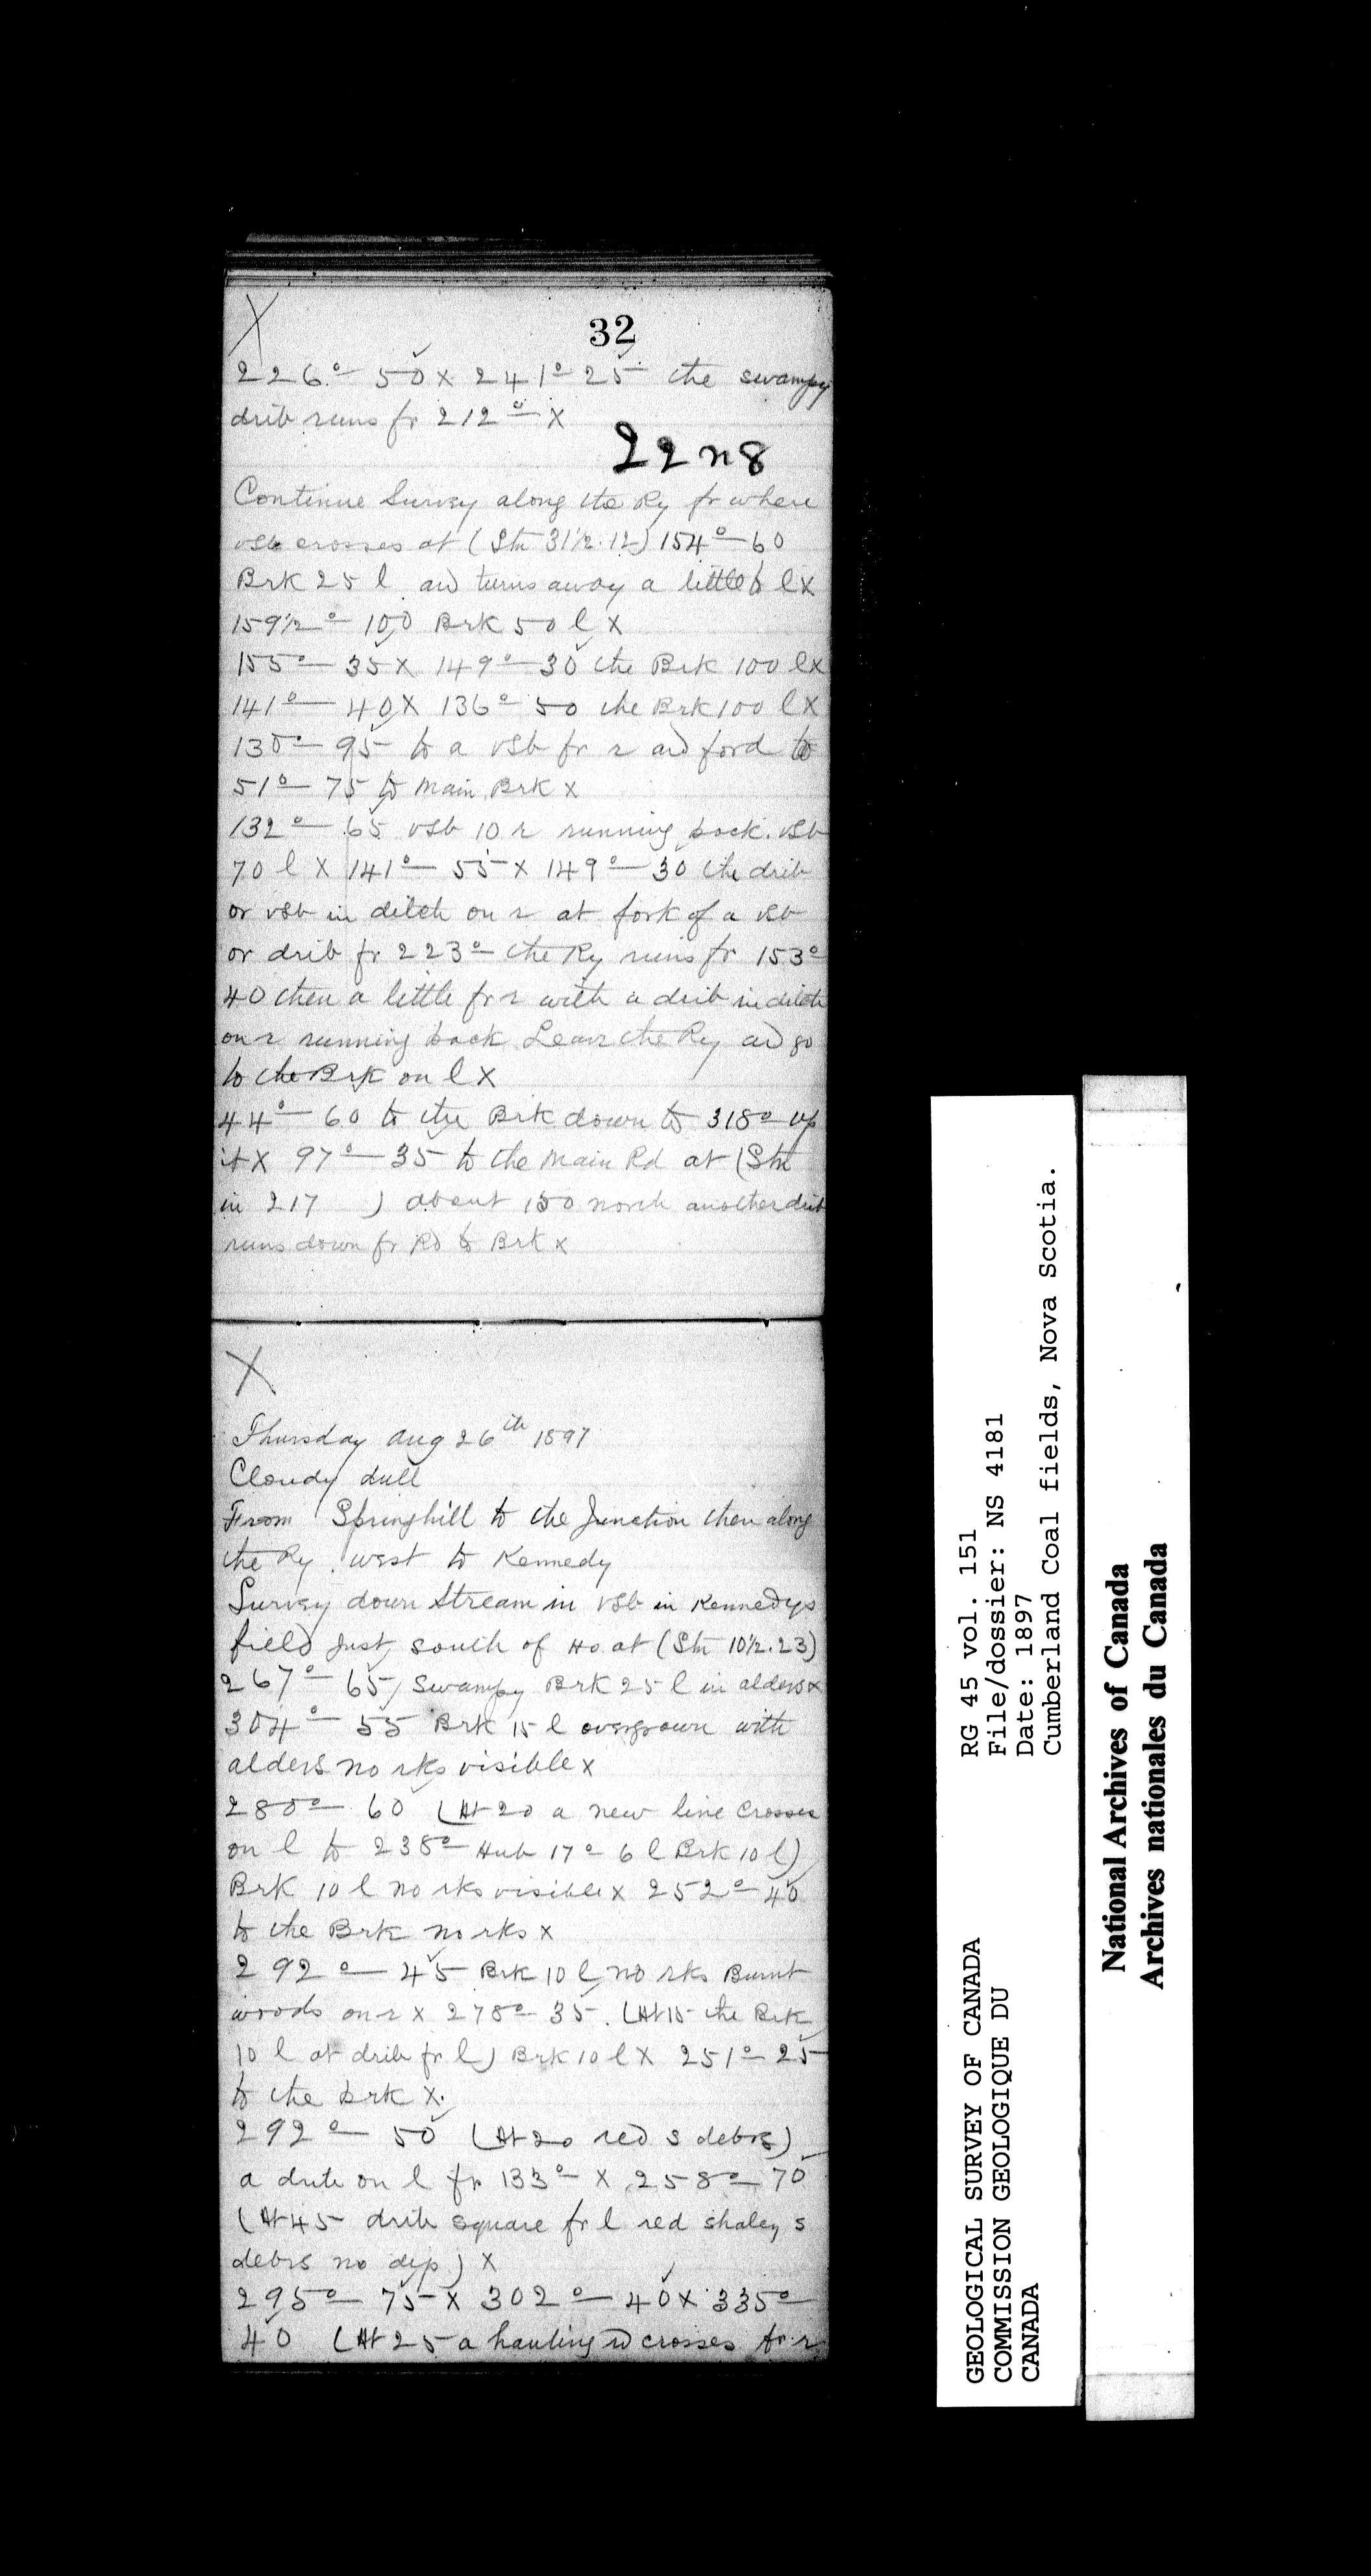 X
32
226° 50 x 241° 25 the swampy
drib runs fr 212° X
22 n 8
Continue Survey along the Ry fr where
vsb crosses at (Stn 31½.12) 154° 60
Brk 25 l and turns away a little to l x
159½° 100 Brk 50 l x
155° 35 x 149° 30 the Brk 100 l x
141° 40 x 136° 50 the Brk 100 l x
130° 95 to a vsb fr r and ford to
51° 75 to Main Brk x
132° 65 vsb 10 r running back. vsb
70 l x 141° 55 x 149° 30 the drib
or vsb in ditch on r at fork of a vsb
or drib fr 223° the Ry runs fr 153°
40 then a little fr r with a drib in ditch
on r running back Leave the Ry and go
to the Brk on l x
44° 60 to the Brk down to 318° up
it x 97° 35 to the Main Rd at (Stn
in 217 ) about 150 north another drib
runs down fr Rd to Brk x
X
Thursday Aug 26th 1897
Cloudy dull
From Springhill to the Junction then along
the Ry west to Kennedy
Survey down Stream in vsb in Kennedys
field just south of Ho at (Stn 10½.23)
267° 65 Swampy Brk 25 l in alders x
304° 55 Brk 15 l overgrown with
alders no rks visible x
280° 60 (At 20 a new line crosses
on l to 238° Hub 17° 6 l Brk 10 l)
Brk 10 l no rks visible x 252° 40
to the Brk no rks x
292° 45 Brk 10 l no rks Burnt
woods on r x 278° 35. (At 15 the Brk
10 l at drib fr l) Brk 10 l x 251° 25
to the brk x.
292° 50 (At 20 red s debrs)
a drib on l fr 133° x 258° 70
(At 45 drib square fr l red shaley s
debrs no dip) x
295° 75 x 302° 40 x 335°
40 (At 25 a hauling rd crosses fr r
GEOLOGICAL SURVEY OF CANADA
COMMISSION GEOLOGIQUE DU
CANADA
RG 45 vol. 151
File/dossier: NS 4181
Date: 1897
Cumberland Coal fields, Nova Scotia.
National Archives of Canada
Archives nationales du Canada